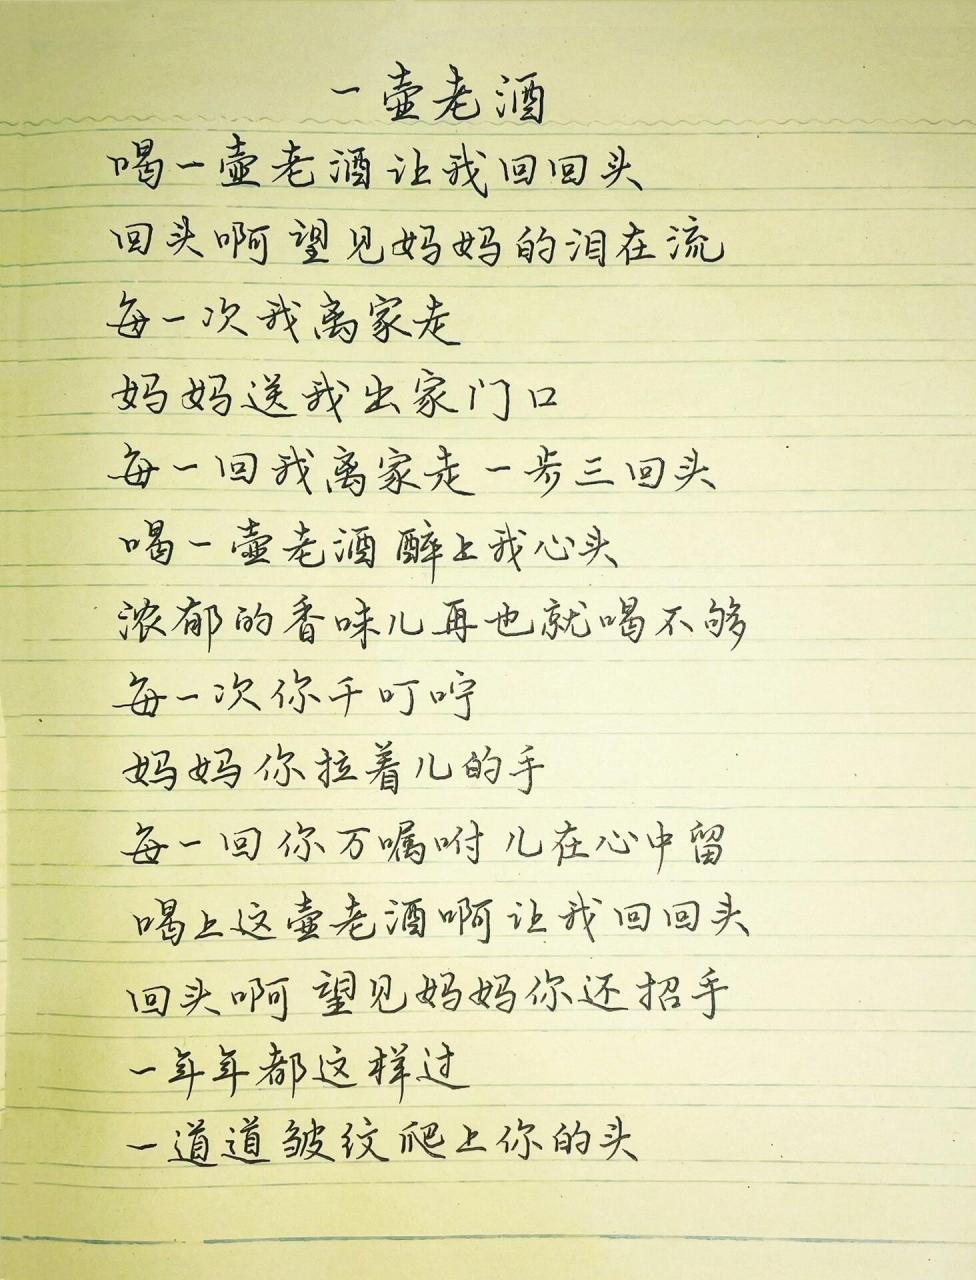 一壶老酒
喝一壶老酒让我回回头
回头啊望见妈妈的泪在流
每一次我离家走
妈妈送我出家门口
每一回我离家走一步三回头
喝一壶老酒醉上我心头
浓郁的香味儿再也就喝不够
每一次你千叮咛
妈妈你拉着儿的手
每一回你万嘱咐儿在心中留
喝上这壶老酒啊让我回回头
回头啊望见妈妈你还招手
一年年都这样过
一道道皱纹爬上你的头